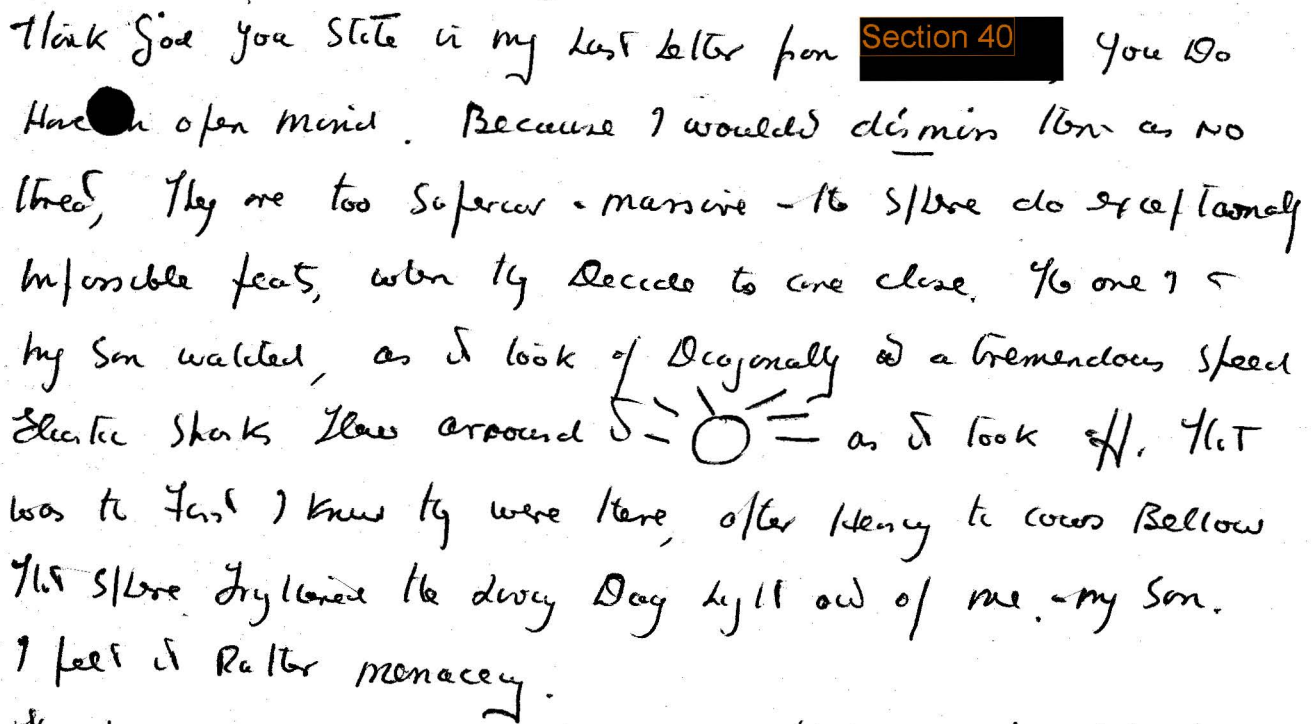 Thank God you state in my last letter from Section 40, you Do
Have an open mind. Because I would dismiss them as no
threat, They are too superior - massive - the sphere do exceptionaly
impossible feats, when they Decide to come close. The one I &
my Son watched, as it took of Diagonally at a tremendous speed
Electric sparks flew arround it as it took off. That
was the first I knew they were there, after Hearing the cows Bellow
That sphere frightened the living Day light out of me - my Son.
I felt it Rather menacing.